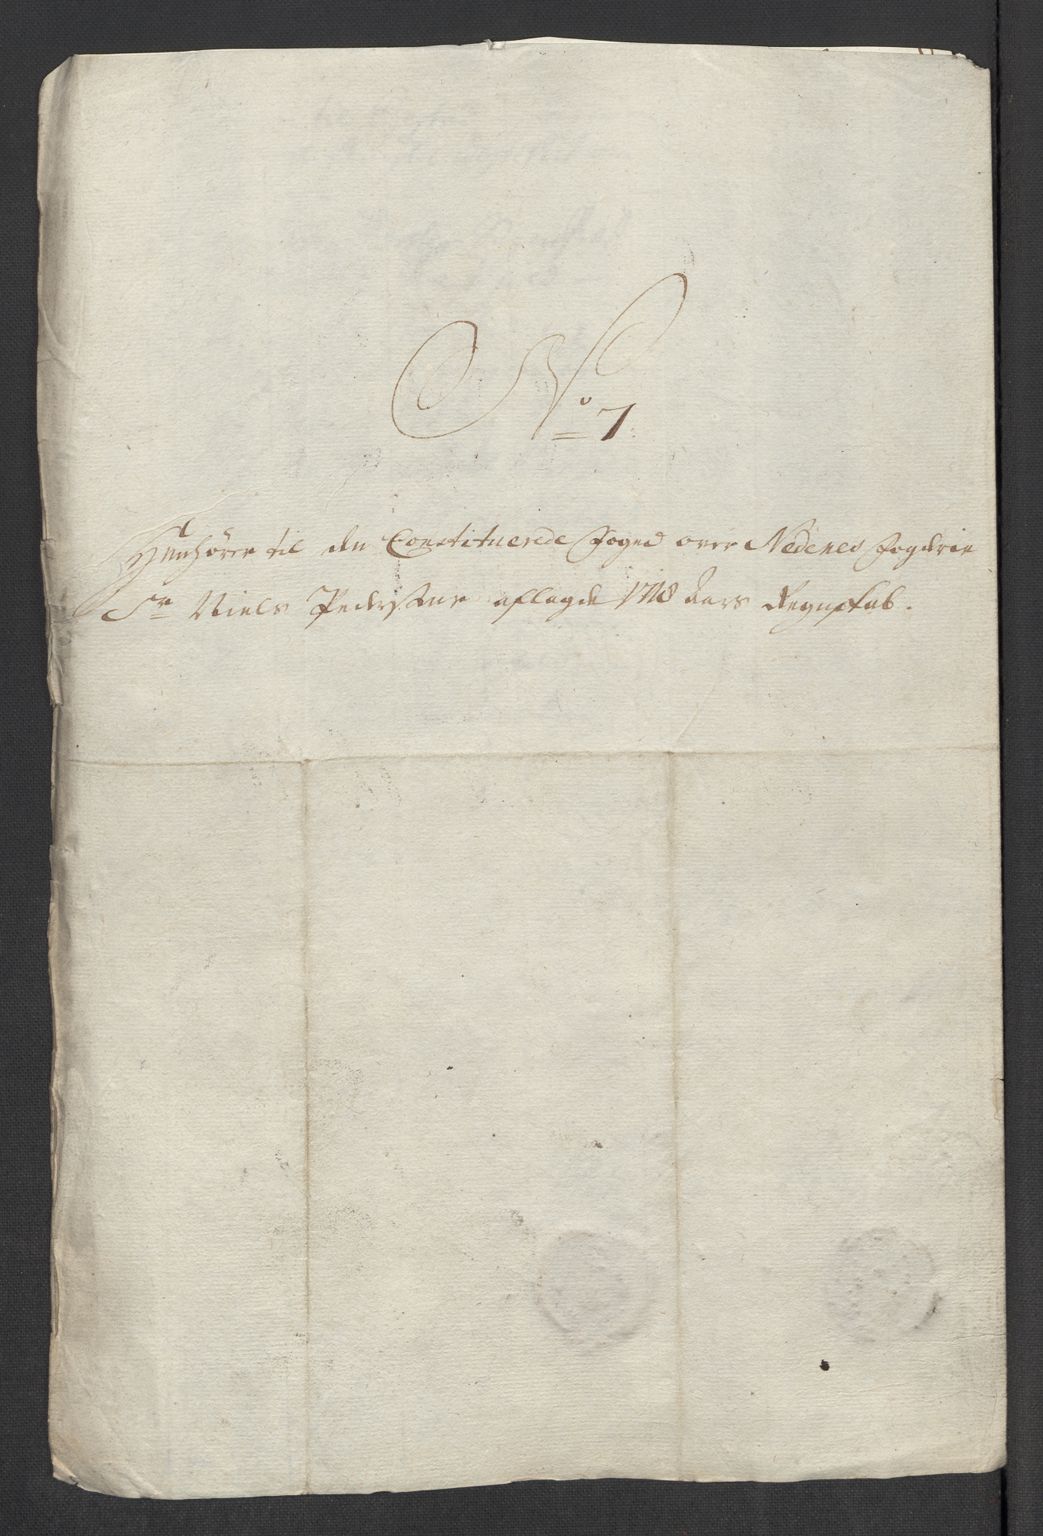 No 7
Henhörer til den Constituerede Foged over Nedenes Fogderie
Sr Niels Pedersens aflagde 1718 Aars Regnskab.